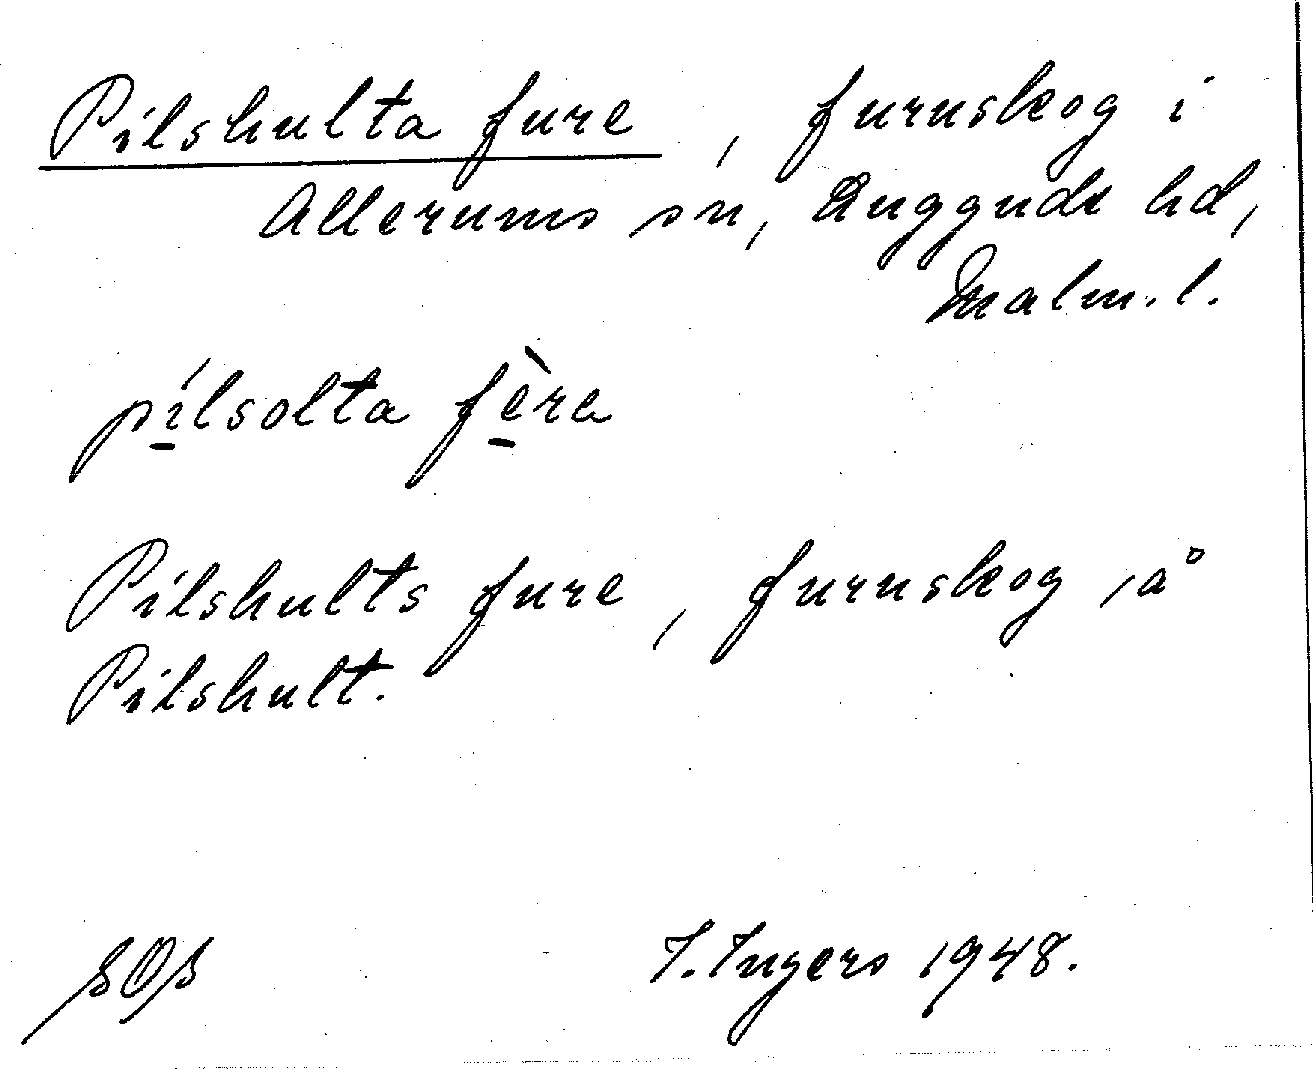 Pilshulta fure, furuskog i
Allerums sn, Luggude hd,
Malm. l.
pílsolta fèra
Pilshults fure, furuskog, å
Pilshult.
SOS I. Ingers 1948.